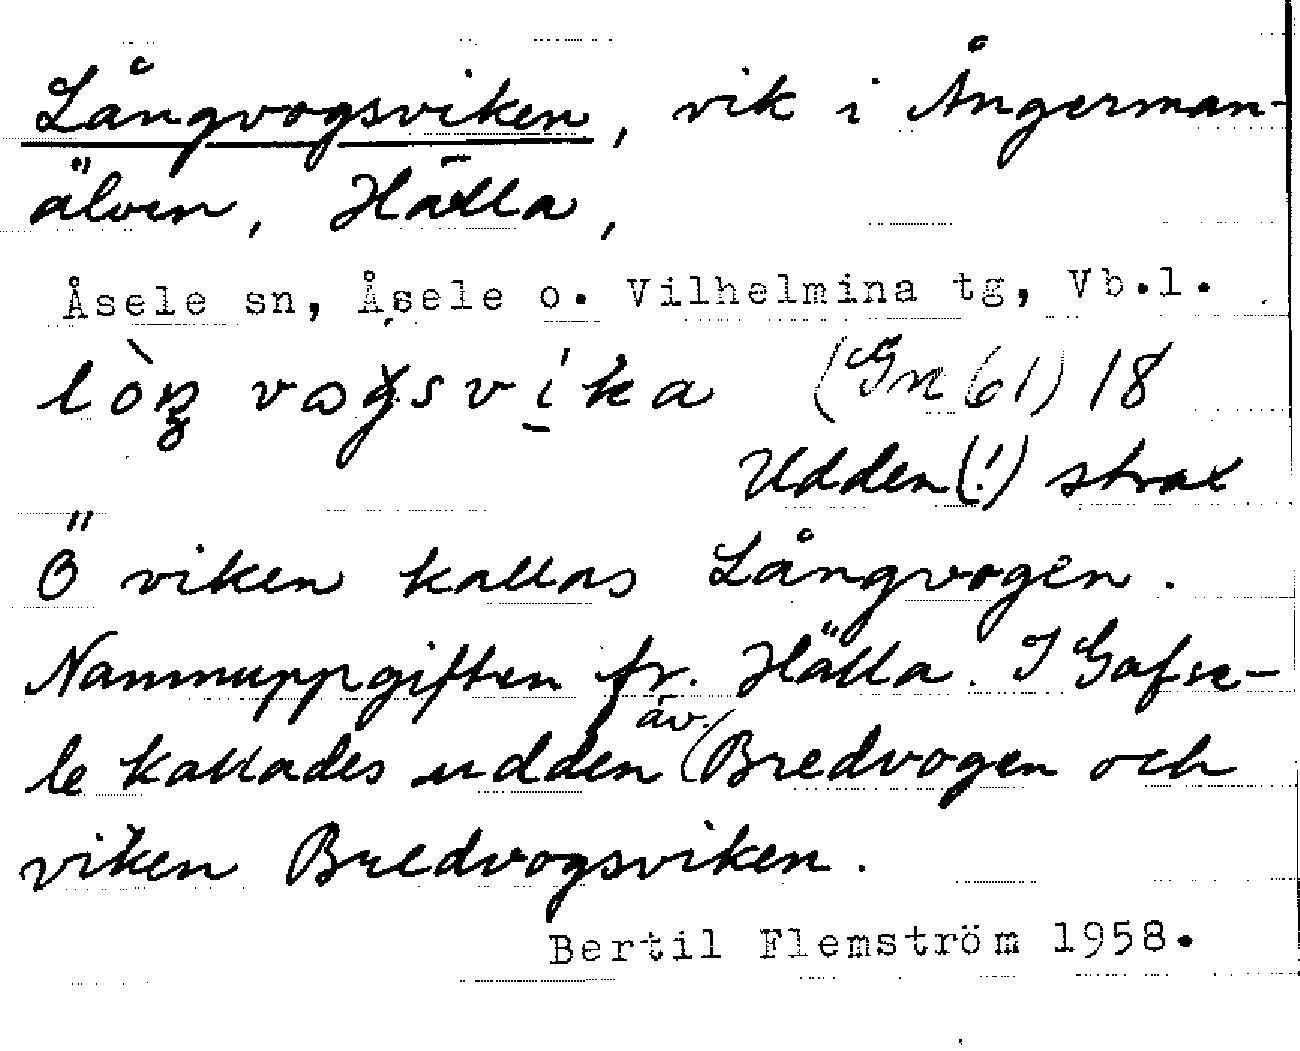 Långvogsviken, vik i Ångerman-
älven, Hälla,
Åsele sn, Åsele o. Vilhelmina tg, Vb.l.
lòŋ vogsvi̲ka (Gn 61) 18
Udden(!) strax
Ö viken kallas Långvogen.
Namnuppgiften fr. Hälla. I Gafse-
le kallades udden äv. Bredvogen och
viken Bredvogsviken.
Bertil Flemström 1958.